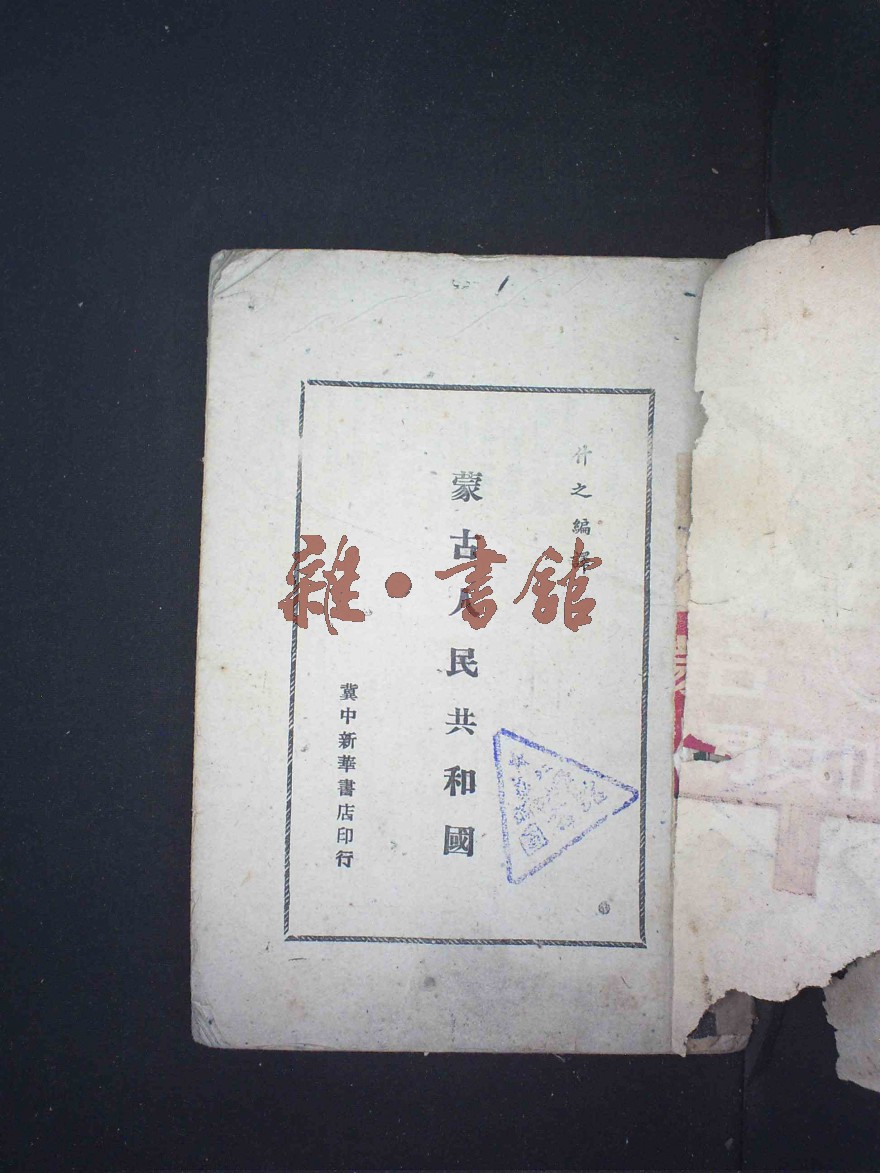 什之編譯
蒙古人民共和國
冀中新華書店印行
雜·書館